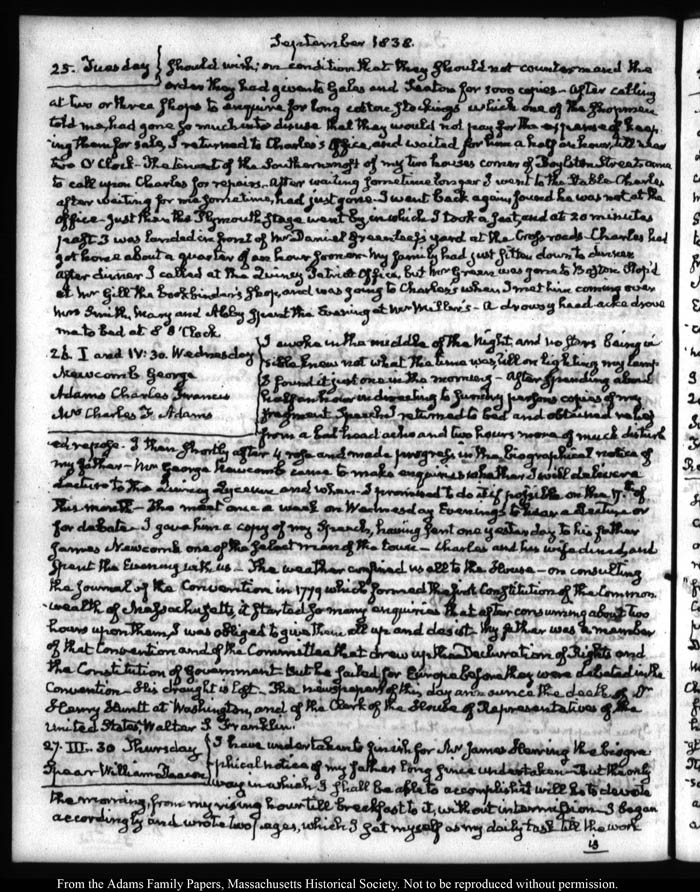 September 1838.
25. Tuesday } should wish, on condition that they should not countermand the
order they had given to Gales and Seaton for 5000 copies – After calling
at two or three shops to enquire for long cotton stockings which one of the shopmen
told me, had gone so much into disuse that they would not pay for the expense of keep-
ing them for sale, I returned to Charles's Office, and waited for him a half an hour, till near
two O'Clock – The tenant of the Southernmost of my two houses corner of Boylston Street came
to call upon Charles for repairs. After waiting sometime longer I went to the Stable. Charles
after waiting for me sometime, had just gone. I went back again, found he was not at the
Office – Just then the Plymouth Stage went by, in which I took a seat, and at 20 minutes
past 3 was landed in front of Mr Daniel Greenleaf's yard at the Cross roads. Charles had
got home about a quarter of an hour sooner. My family had just sitten down to dinner
After dinner I called at the Quincy Patriot Office, but Mr Green was gone to Boston. Stop'd
at Mr Gill the bookbinder's shop, and was going to Charles's when I met him coming over
Mrs Smith, Mary and Abby spent the Evening at Mr Miller's – A drowsy head-ache drove
me to bed at 8 O'Clock
26. I and IV: 30. Wednesday { I awoke in the middle of the Night, and no stars being vi-
Newcomb George sible knew not what the time was, till on lighting my lamp
Adams Charles Francis I found it just one in the morning – After spending about
Mrs Charles F. Adams half an hour in directing to sundry persons copies of my
fragment Speech I returned to bed and obtained relief
from a bad head ache and two hours more of much disturb-
ed repose. I then shortly after 4 rose and made progress in the biographical notice of
my father – Mr George Newcomb came to make enquiries whether I will deliver a
Lecture to the Quincy Lyceum and when. I promised to do it if possible on the 17th of
this month – They meet once a week on Wednesday Evenings to hear a Lecture or
for debate – I gave him a copy of my Speech, having sent one yesterday to his father
James Newcomb one of the Select men of the town – Charles and his wife dined, and
spent the Evening with us – The weather confined us all to the House – On consulting
the Journal of the Convention in 1779 which formed the first Constitution of the Common-
wealth of Massachusetts, it started so many enquiries that after consuming about two
hours upon them, I was obliged to give them all up and desist – My father was a member
of that Convention and of the Committee that drew up the Declaration of Rights and
the Constitution of Government – But he sailed for Europe before they were debated in the
Convention – His draught is lost – The newspapers of this day announce the death of Dr
Henry Huntt at Washington, and of the Clerk of the House of Representatives of the
United States, Walter S Franklin.
27. III.. 30 Thursday { I have undertaken to finish for Mr James Herring the biogra-
Spear William Deacon phical notice of my father long since undertaken – But the only
way in which I shall be able to accomplish it will be to devote
the morning, from my rising hour till breakfast to it, without intermission – I began
accordingly and wrote two pages, which I set myself as my daily task till the work
is
From the Adams Family Papers, Massachusetts Historical Society. Not to be reproduced without permission.